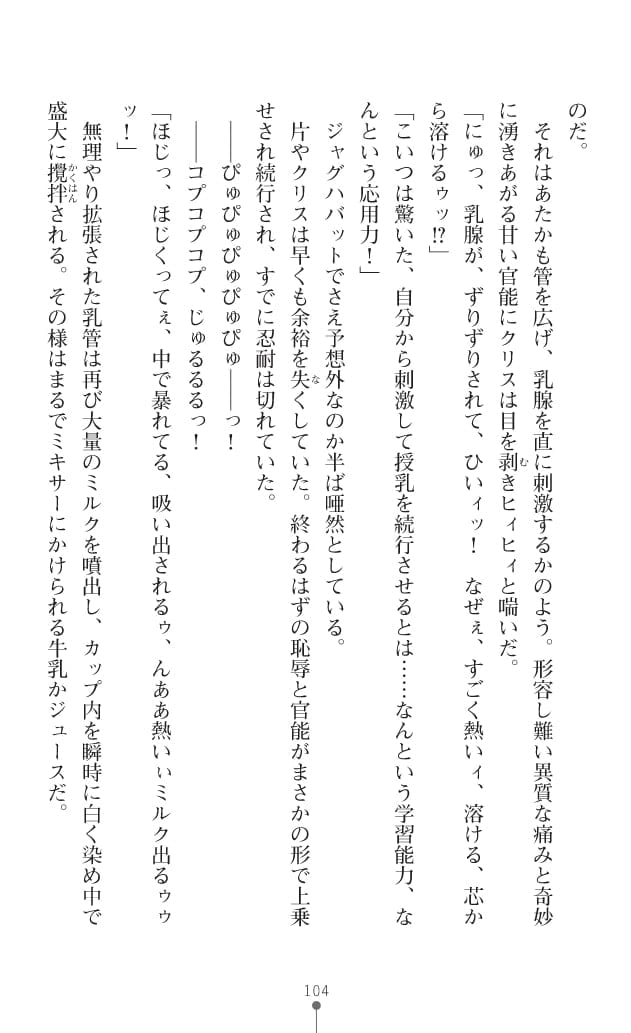 のだ。
　それはあたかも管を広げ、乳腺を直に刺激するかのよう。形容し難い異質な痛みと奇妙
に湧きあがる甘い官能にクリスは目を剥きヒィヒィと喘いだ。
「にゅっ、乳腺が、ずりずりされて、ひいィッ！　なぜぇ、すごく熱いィ、溶ける、芯か
ら溶けるゥッ!?」
「こいつは驚いた、自分から刺激して授乳を続行させるとは……なんという学習能力、な
んという応用力！」
　ジャグハバットでさえ予想外なのか半ば唖然としている。
　片やクリスは早くも余裕を失くしていた。終わるはずの恥辱と官能がまさかの形で上乗
せされ続行され、すでに忍耐は切れていた。
　――ぴゅぴゅぴゅぴゅぴゅ――っ！
　――コプコプコプ、じゅるるるっ！
「ほじっ、ほじくってぇ、中で暴れてる、吸い出されるゥ、んああ熱いぃミルク出るゥゥ
ッ！」
　無理やり拡張された乳管は再び大量のミルクを噴出し、カップ内を瞬時に白く染め中で
盛大に攪拌される。その様はまるでミキサーにかけられる牛乳かジュースだ。
104